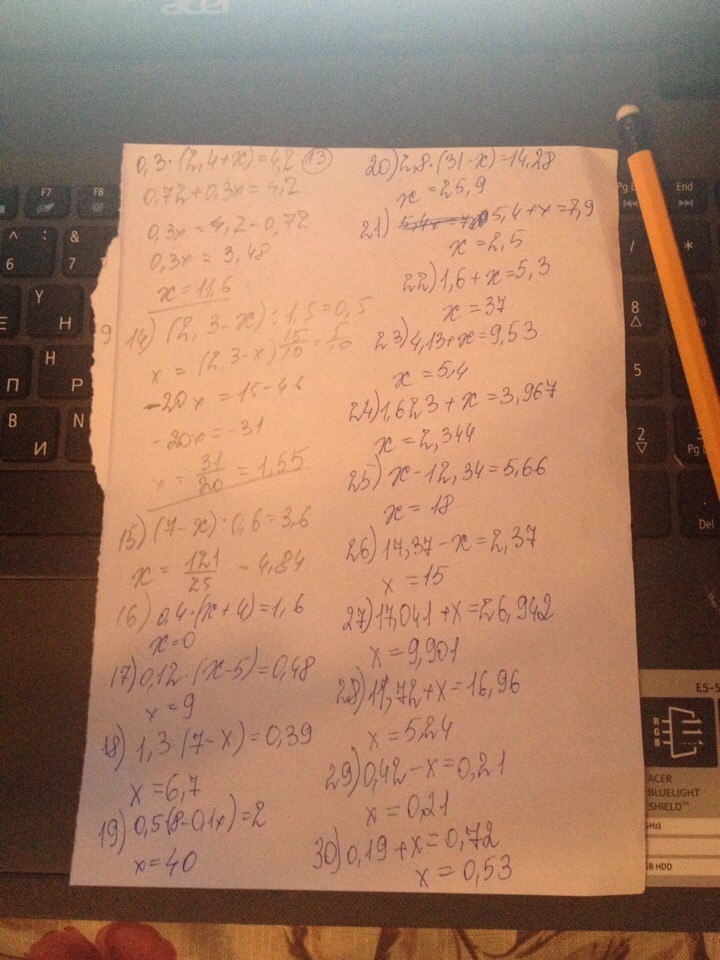 acer
0,3·(2,4+x)=4,2 (13)
0,72+0,3x=4,2
0,3x=4,2-0,72
0,3x=3,48
x=11,6
14) (2,3-x):1,5=0,5
x = (2,3-x) 15/10 = 5/10
-20x = 15-46
-20x=-31
x = 31/20 = 1,55
15) (7-x):0,6=3,6
x = 121/25 = 4,84
16) 0,4·(x+4)=1,6
x=0
17) 0,12·(x-5)=0,48
x=9
18) 1,3·(7-x)=0,39
x=6,7
19) 0,5·(8-0,1x)=2
x=40
20) 2,8·(31-x)=14,28
x=25,9
21) 5,4+x=7,9
x=2,5
22) 1,6+x=5,3
x=37
23) 4,13+x=9,53
x=5,4
24) 1,623+x=3,967
x=2,344
25) x-12,34=5,66
x=18
26) 17,37-x=2,37
x=15
27) 17,041+x=26,942
x=9,901
28) 11,72+x=16,96
x=5,24
29) 0,42-x=0,21
x=0,21
30) 0,19+x=0,72
x=0,53
F7
F8
Pg
End
^
:
&
6
7
/
*
Y
Н
8
9
П
Р
5
В
И
2
3
Pg
Del
E5-5
RGB
ACER
BLUELIGHT
SHIELD™
GHz)
GB HDD